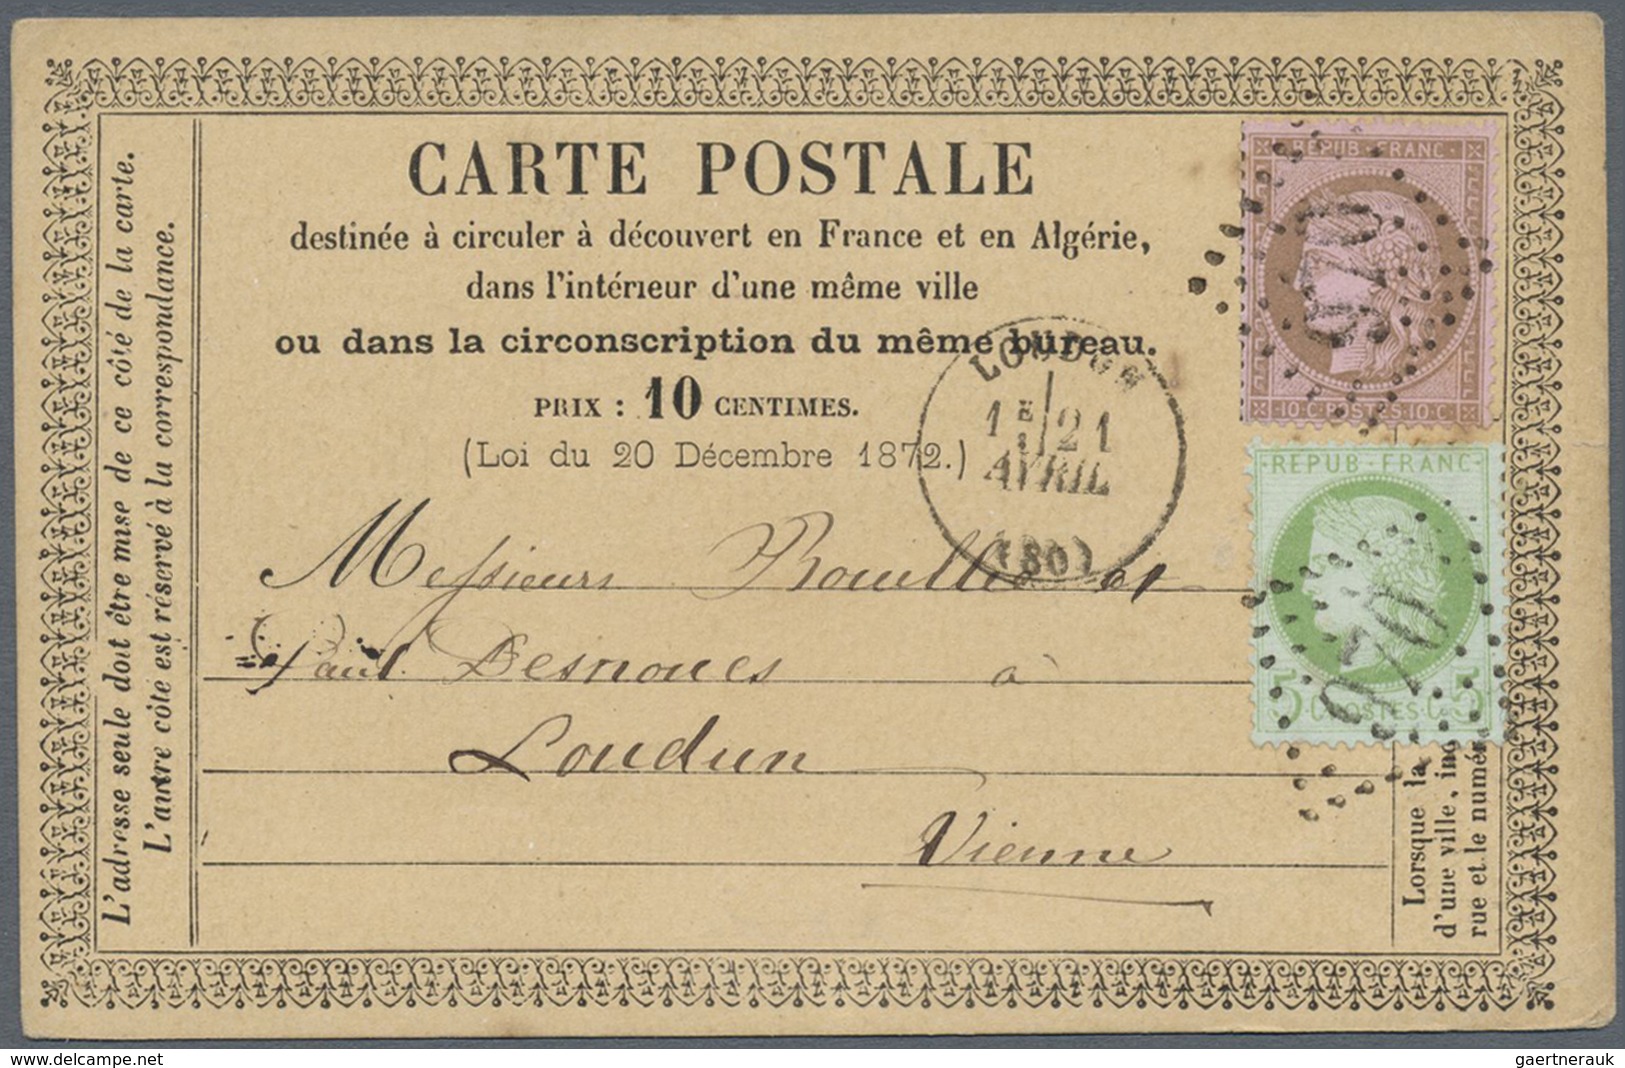 CARTE POSTALE
destinée à circuler à découvert en France et en Algérie,
dans l'intérieur d'une même ville
ou dans la circonscription du même bureau.
PRIX : 10 CENTIMES.
(Loi du 20 Décembre 1872.)
L'adresse seule doit être mise de ce côté de la carte.
L'autre côté est réservé à la correspondance.
REPUB·FRANC·
10·C·POSTES·10·C·
·REPUB·FRANC·
5 C·POSTES·C 5
LOUDUN
1E/21
AVRIL
(80)
Messieurs Rouillé et
Paul Desnoues à
Loudun
Vienne
Lorsque la
d'une ville, in
rue et le numér
delcampe.net
gaertnerauk